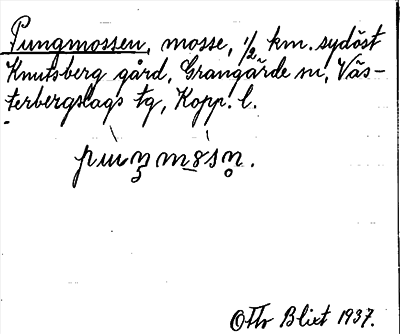 Pungmossen, mosse, 1/2 km. sydöst
Knutsberg gård, Grangärde sn, Väs-
terbergslags tg, Kopp. l.
Otto Blixt 1937.